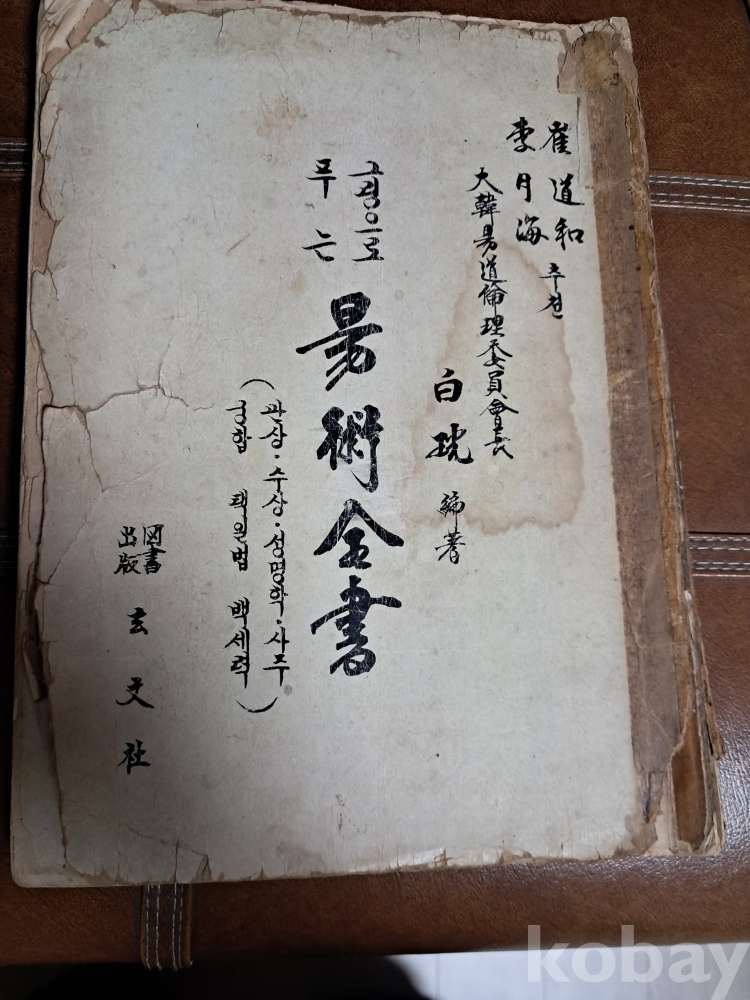 崔道和 추천
李月海
大韓易道倫理委員會長
白 編著
그림으로
푸는
易術全書
(관상·수상·성명학·사주
궁합 택일법 백세력)
図書
出版
玄文社
kobay